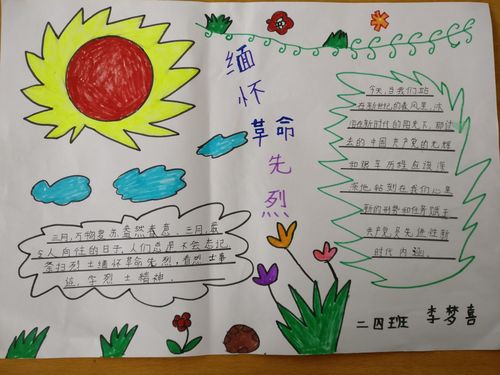 缅怀
革命
先烈
三月,万物复苏,盎然春意。三月,最
令人向往的日子,人们总是不会忘记
圣扫烈士缅怀革命先烈,看烈士事
迹,学烈士精神。
今天,当我们站
在新世纪的春风里,沐
浴在新时代的阳光下,那过
去的中国共产党的光辉
和艰辛历程应该深
深地铭刻在我们心里
新的形势和任务赋予
共产党员先进性新
时代内涵。
二四班 李梦喜